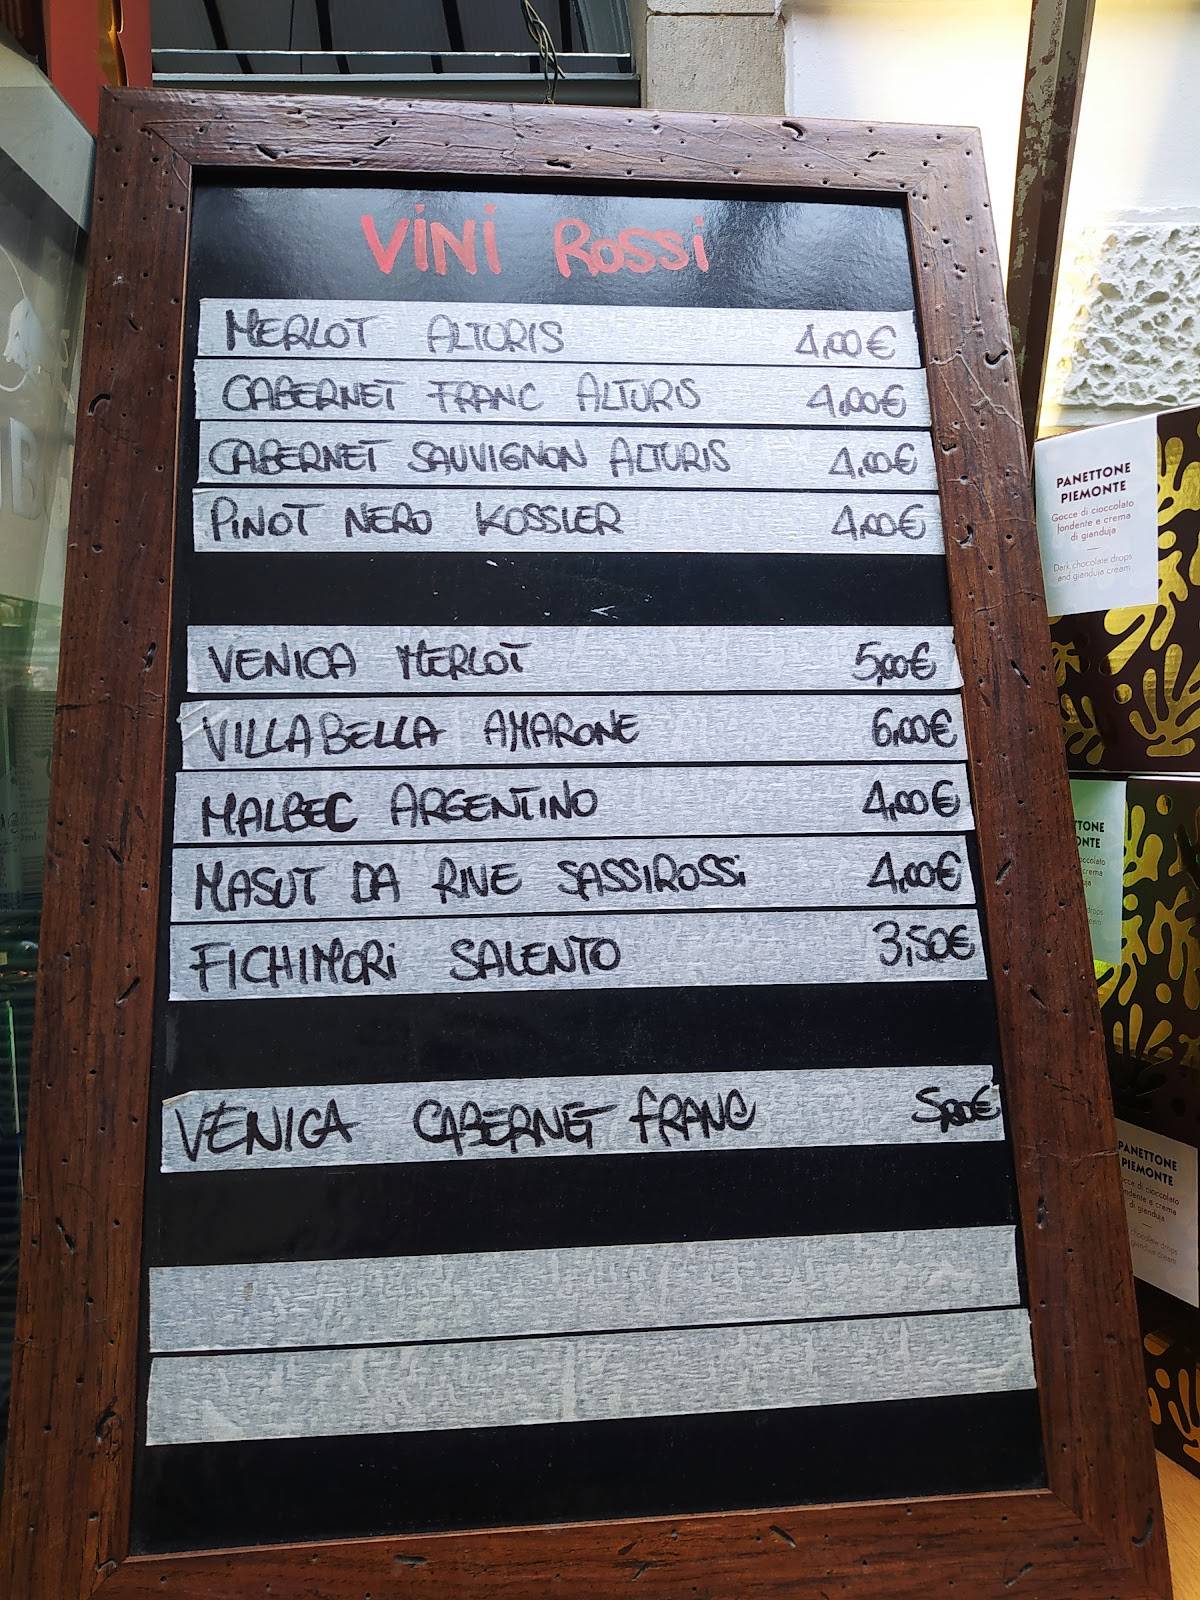 Vini Rossi
MERLOT ALTURIS 4,00€
CABERNET FRANC ALTURIS 4,00€
CABERNET SAUVIGNON ALTURIS 4,00€
PINOT NERO KOSSLER 4,00€
VENICA MERLOT 5,00€
VILLABELLA AMARONE 6,00€
MALBEC ARGENTINO 4,00€
MASUT DA RIVE SASSIROSSi 4,00€
FICHIMORi SALENTO 3,50€
VENICA CABERNET FRANC 5,00€
PANETTONE
PIEMONTE
Gocce di cioccolato
fondente e crema
di gianduja
Dark chocolate drops
and gianduja cream
PANETTONE
PIEMONTE
di gianduja